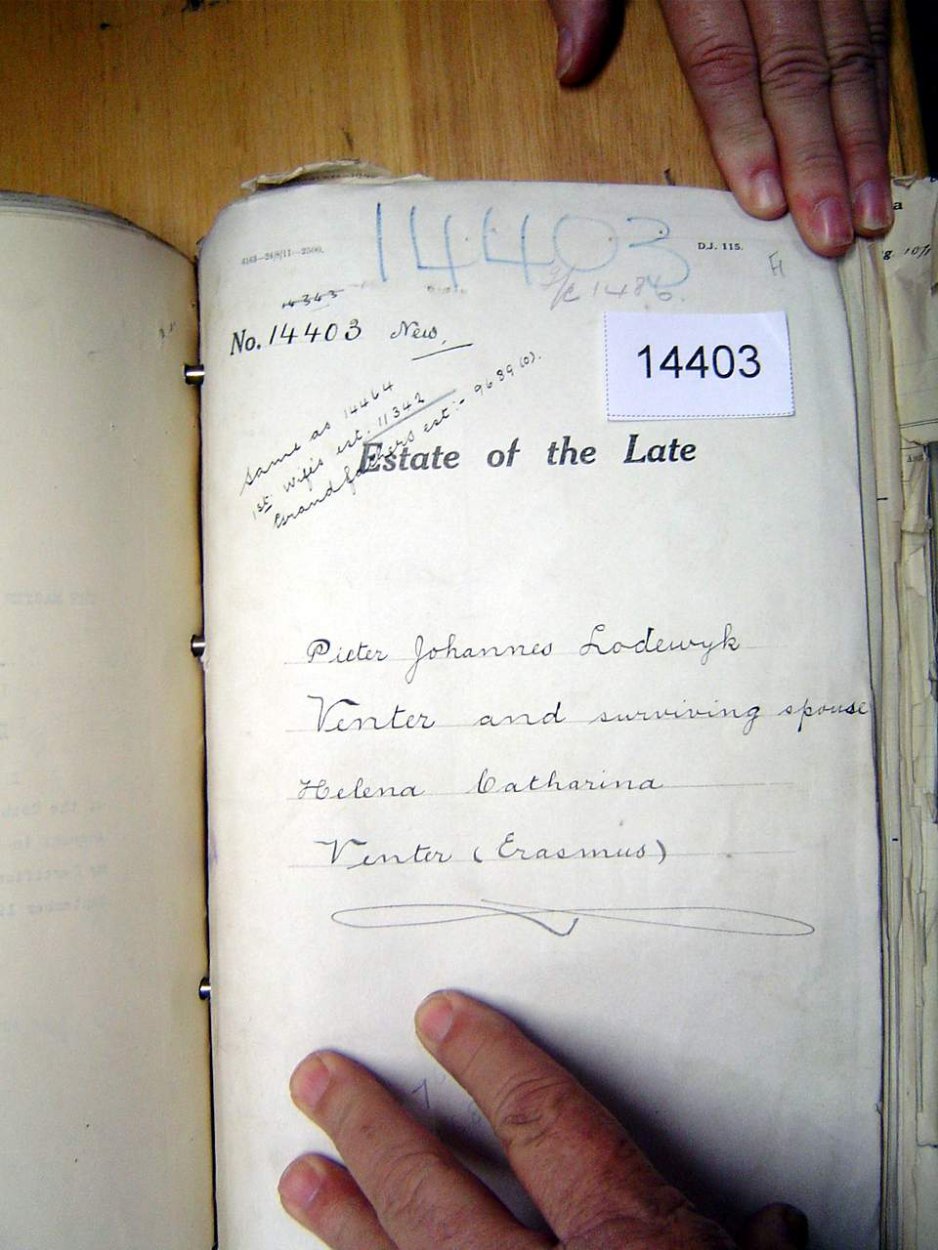 14403
D.J. 115.
1486.
14343
No. 14403 New,
14403
Same as 14464
1st wife's est. 11342
Grandfathers est:- 9689(0).
Estate of the Late
Pieter Johannes Lodewyk
Venter and surviving spouse
Helena Catharina
Venter (Erasmus)